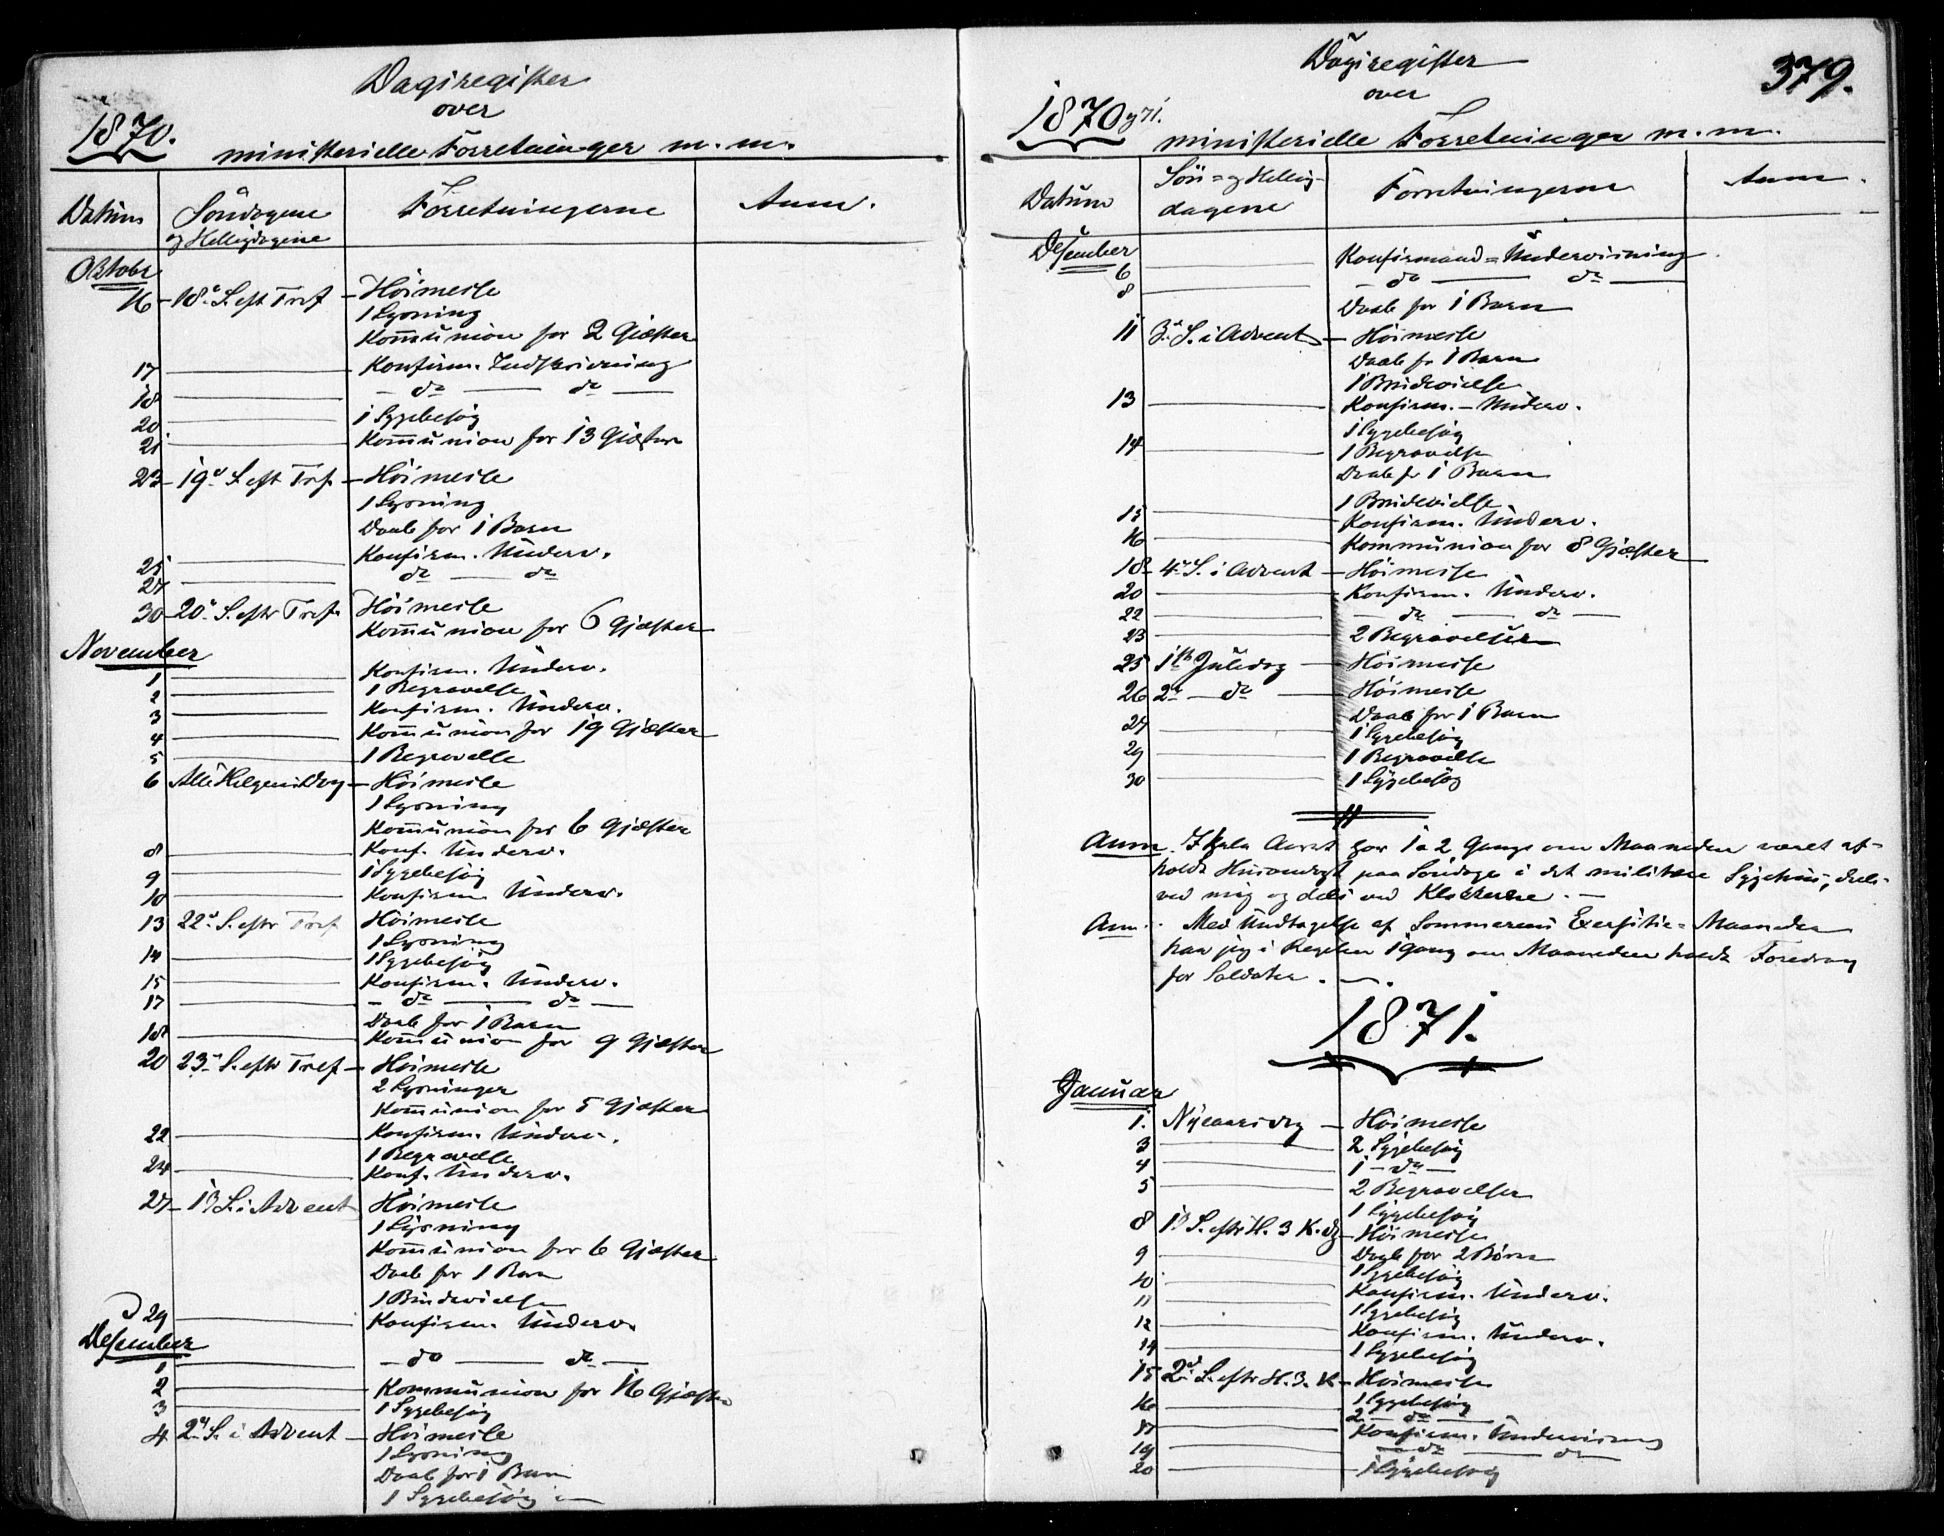 Dagsregister
over
1870.
ministerielle Forretninger m. m.
Datum Söndagene Forretningerne Anm.
og Helligdagene
Oktobr
16 – 18d S. eft Tref – Höimesse
1 Lysning
Kommunion for 2 Gjæster
17 Konfirm. Indskrivning
18 – do – do –
20 1 Sygebesøg
21 Kommunion for 13 Gjæster
23 – 19d S. eft Tref – Höimesse
1 Lysning
Daab for 1 Barn
25 Konfirm. Underv.
27 do – do
30 – 20d S. eftr Tref. Höimesse
Kommunion for 6 Gjæster
November
1 Konfirm. Underv.
2 1 Begravelse
3 Konfirm. Underv.
4 Kommunion for 19 Gjæster
5 1 Begravelse
6 Alle Helgens Dag – Höimesse
1 Lysning
Kommunion for 6 Gjæster
8 Konf. Underv.
9 1 Sygebesøg
10 Konfirm Underv.
13 22d S. eftr Tref Höimesse
1 Lysning
14 1 Sygebesøg
15 Konfirm. Underv.
17 – do – do –
Daab for 1 Barn
18 Kommunion for 9 Gjæster
20 23d S. eftr Tref – Höimesse
2 Lysninger
Kommunion for 5 Gjæster
22 Konfirm. Underv.
1 Begravelse
24 Konf. Underv.
27 – 1ste S. i Advent Höimesse
1 Lysning
Kommunion for 6 Gjæster
Daab for 1 Barn
1 Brudevielse
29 Konfirm. Underv.
Desember
1 – do – do –
2 Kommunion for 16 Gjæster
3 1 Sygebesøg
4 2d S. i Advent – Höimesse
1 Lysning
Daab for 1 Barn
1 Sygebesøg
Dagsregister
379.
over
1870 og 71.
ministerielle Forretninger m. m.
Datum Sön= og Hellig- Forretningerne Anm.
dagene
Desember
6 Konfirmand=Underviisning
8 – do – do –
Daab for 1 Barn
11 3d S. i Advent – Höimesse
Daab fr 1 Barn
1 Brudevielse
13 Konfirm. – Underv.
1 Sygebesøg
14 1 Begravelse
Daab fr 1 Barn
1 Brudevielse
15 Konfirm. Underv.
16 Kommunion for 8 Gjæster
18 – 4d S. i Advent – Höimesse
20 Konfirm. Underv.
22 – do – do –
23 2 Begravelser
25 1ste Juledag – Höimesse
26 2d – do – Höimesse
Daab for 1 Barn
27 1 Sygebesøg
29 1 Begravelse
30 1 Sygebesøg
Anm. I hele Aaret har 1 a 2 Gange om Maaneden været af-
holdt Husandagt paa Söndage i det militære Sygehus, dels
ved mig og dels ved Klokkerne. –
Anm. Med Undtagelse af Sommerens Exersitie=Maaneder
har jeg i Regelen 1 gang om Maaneden holdt Foredrag
for Soldater. –
1871.
Januar
1. Nyeaarsdag – Höimesse
3 2 Sygebesøg
4 1 – do –
5 2 Begravelser
1 Sygebesøg
8 1ste S. eftr H. 3 K. dg – Höimesse
Daab for 2 Börn
9 1 Sygebesøg
10 Konfirm. Underv.
11 1 Sygebesøg
12 Konfirm. Underv.
14 1 Sygebesøg
15 2d S. eftr H. 3. K – Höimesse
1 Sygebesøg
16 2 – do –
17 Konfirm. Underviisning
19 – do – do
20 1 Sygebesøg